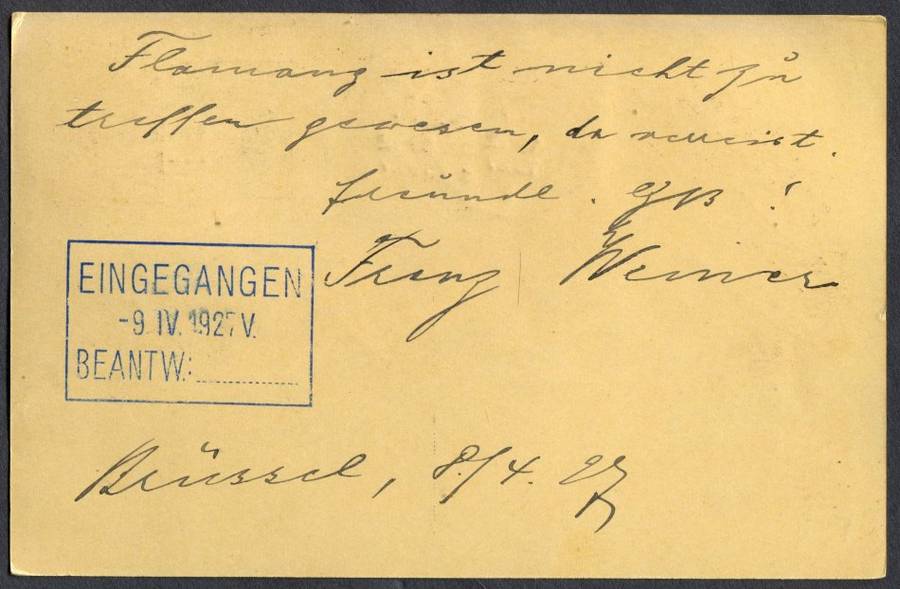 Flamang ist nicht zu
treffen gewesen, da verreist.
freundl. Grß !
Franz Weimer
EINGEGANGEN
-9. IV. 1927 V.
BEANTW.:
Brüssel, 8./4. 27